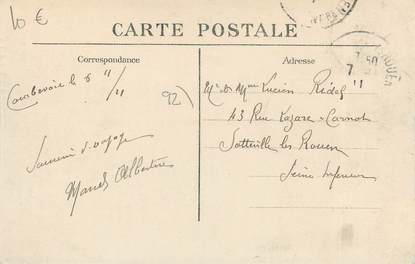 10 €
CARTE POSTALE
Correspondance
Adresse
Courbevoie le 8 11/11
92)
Mr & Mme Lucien Ridel
43 Rue Lazare-Carnot
Sotteville les Rouen
Seine Inferieure
Souvenir d'voyage
Albertine